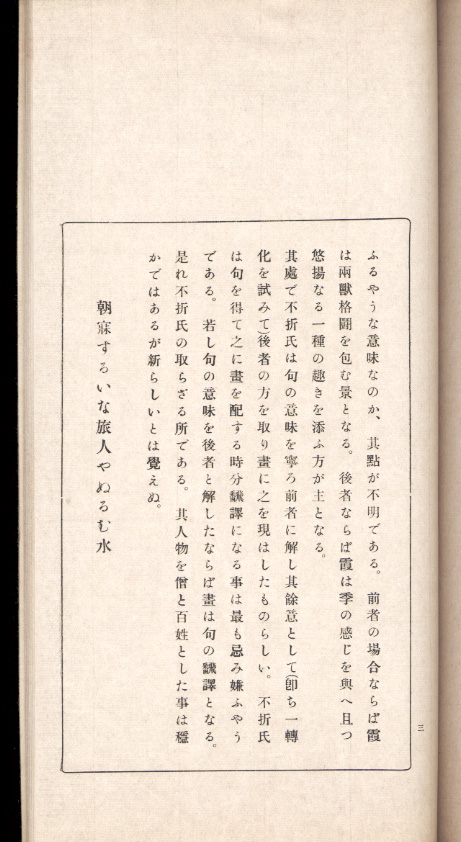 ふるやうな意味なのか、其點が不明である。前者の場合ならば霞
は兩獸格鬪を包む景となる。後者ならば霞は季の感じを與へ且つ
悠揚なる一種の趣きを添ふ方が主となる。
其處で不折氏は句の意味を寧ろ前者に解し其餘意として(卽ち一轉
化を試みて)後者の方を取り畫に之を現はしたものらしい。不折氏
は句を得て之に畫を配する時分飜譯になる事は最も忌み嫌ふやう
である。若し句の意味を後者と解したならば畫は句の飜譯となる。
是れ不折氏の取らざる所である。其人物を僧と百姓とした事は穩
かではあるが新らしいとは覺えぬ。
朝寐するいな旅人やぬるむ水
三